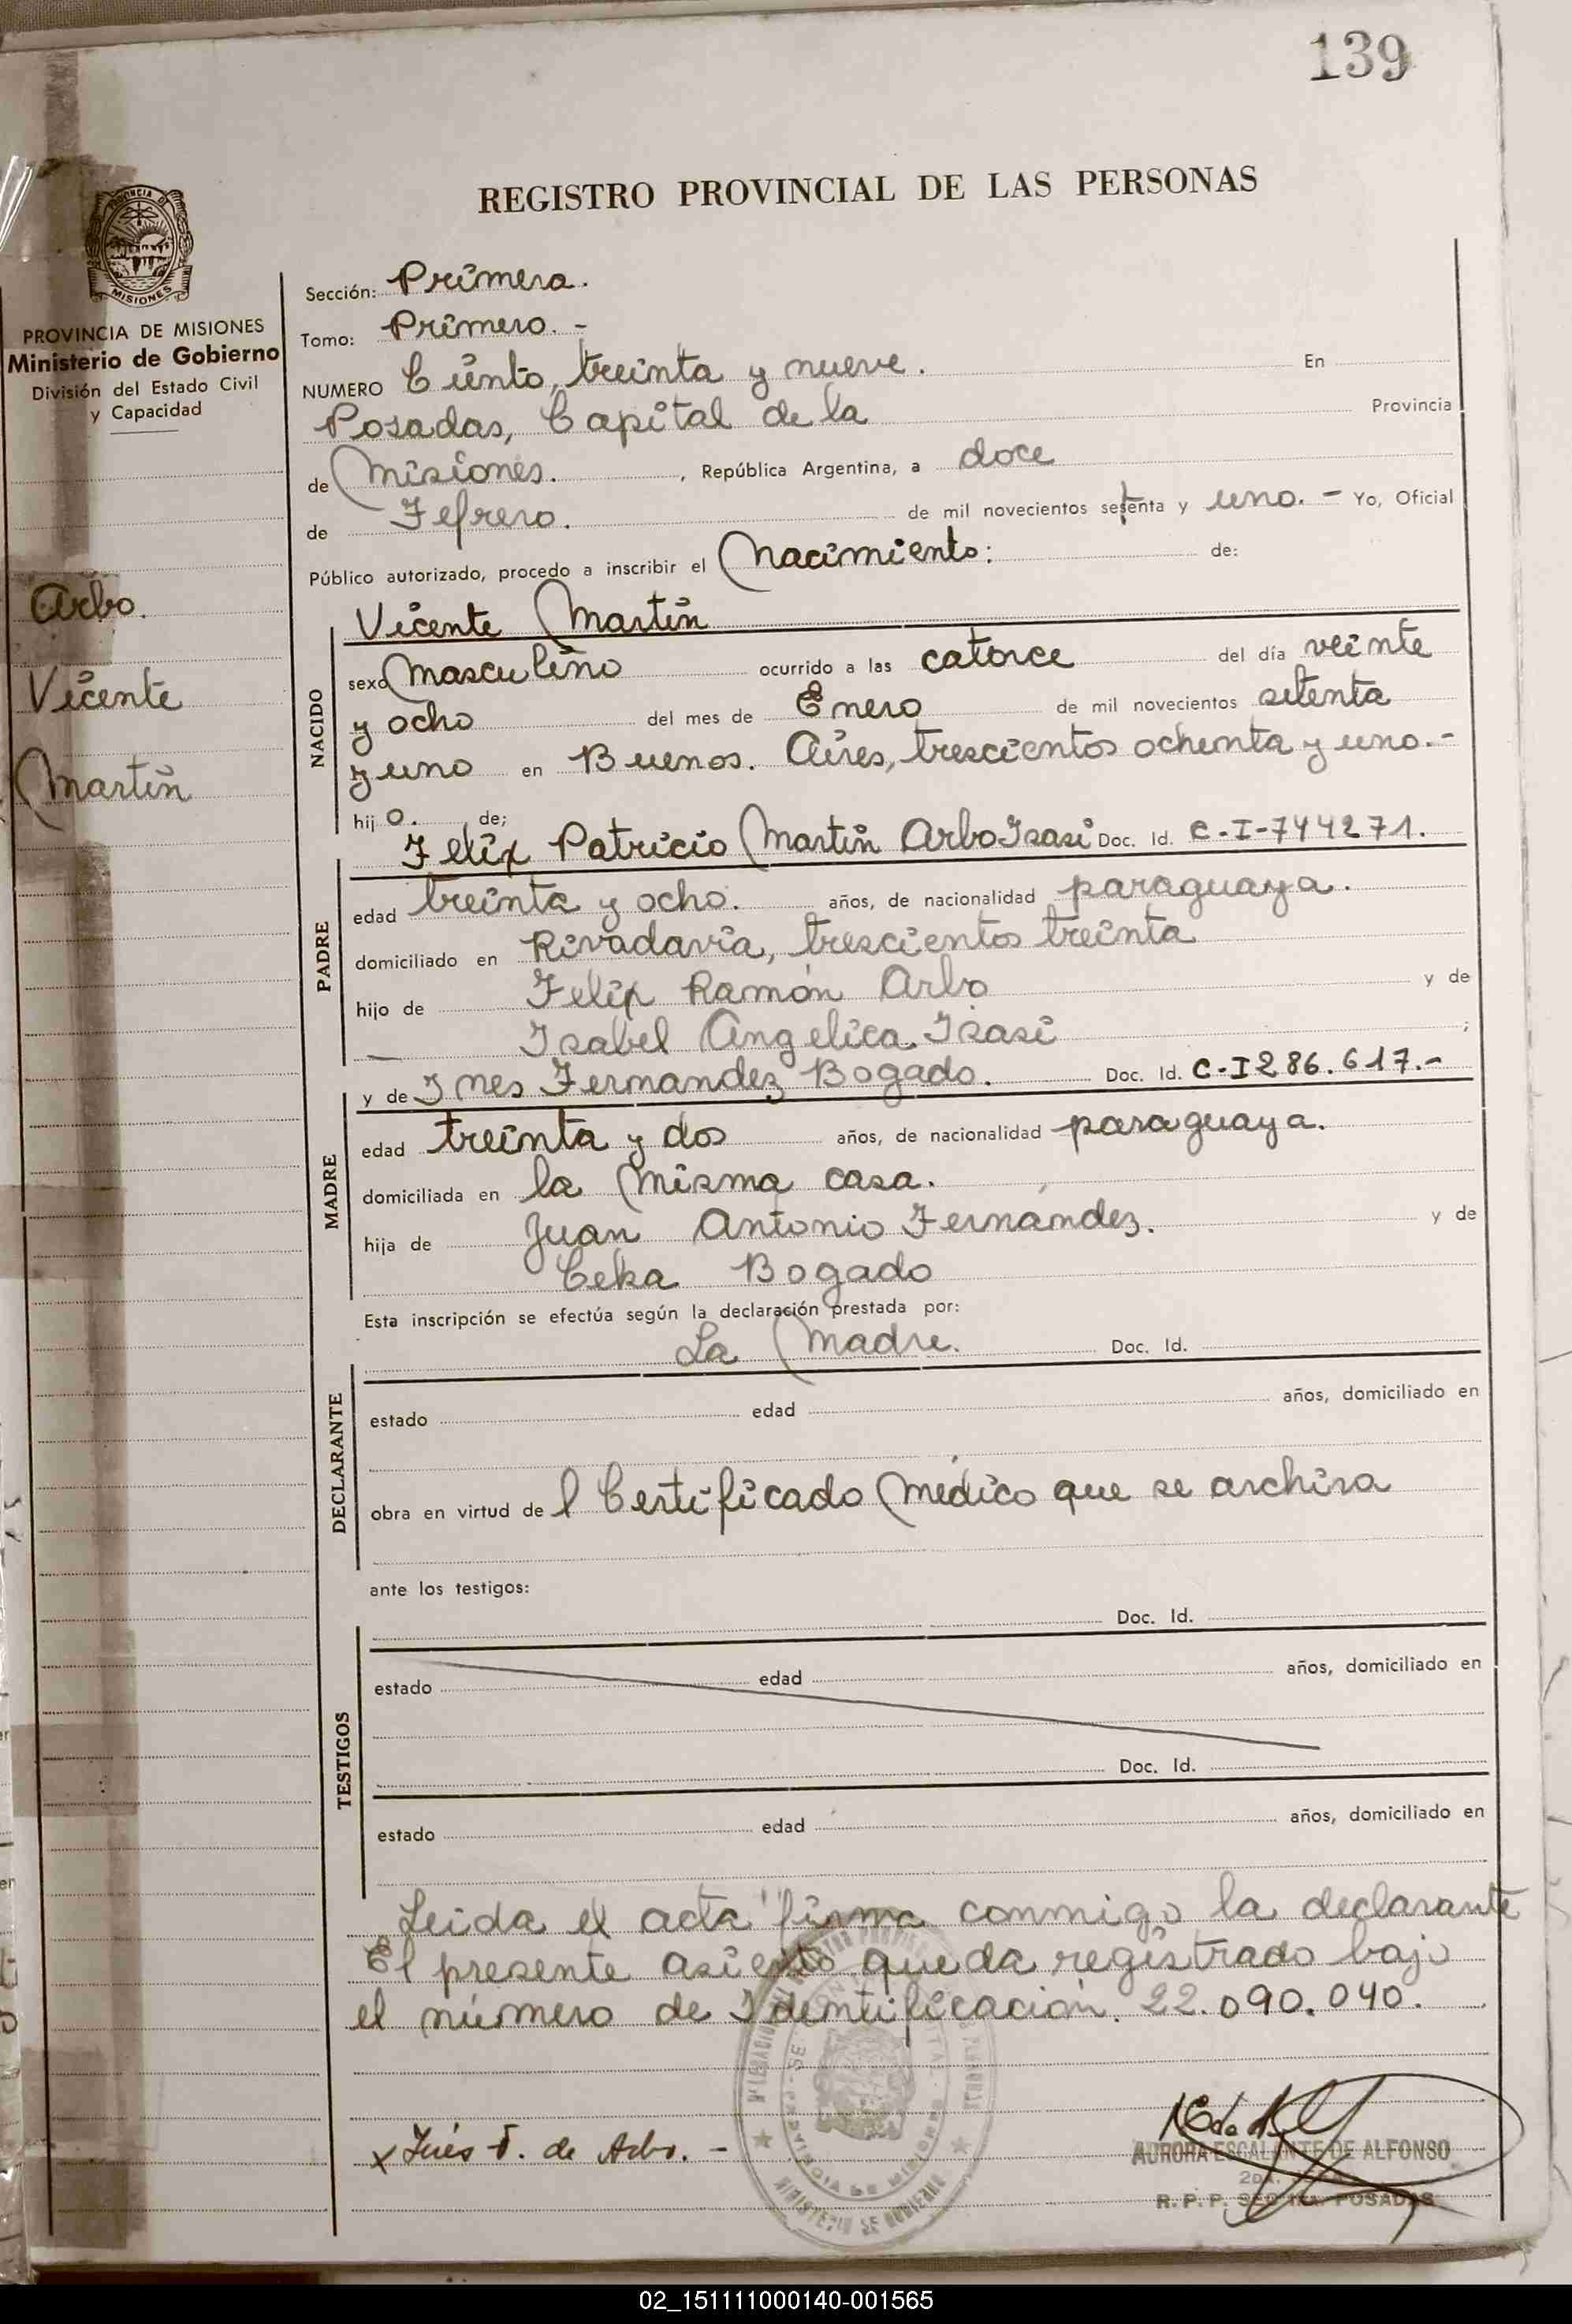 139
REGISTRO PROVINCIAL DE LAS PERSONAS
MISIONES
PROVINCIA DE MISIONES
Ministerio de Gobierno
División del Estado Civil
y Capacidad
Arbo.
Vicente
Martín
Sección: Primera.
Tomo: Primero. -
NUMERO Ciento, treinta y nueve. En
Posadas, Capital de la Provincia
de Misiones. , República Argentina, a doce
de Febrero. de mil novecientos setenta y uno. - Yo, Oficial
Público autorizado, procedo a inscribir el Nacimiento: de:
Vicente Martín
NACIDO
sexo Masculino ocurrido a las catorce del día veinte
y ocho del mes de Enero de mil novecientos setenta
y uno en Buenos. Aires, trescientos ochenta y uno.-
hij o. de;
Felix Patricio Martín Arbo Isasi Doc. Id. C-I-744271.
PADRE
edad treinta y ocho. años, de nacionalidad paraguaya.
domiciliado en Rivadavia, trescientos treinta
hijo de Felix Ramón Arbo y de
Isabel Angelica Isasi ;
y de Ines Fernandez Bogado. Doc. Id. C-I 286.617.-
MADRE
edad treinta y dos años, de nacionalidad paraguaya.
domiciliada en la misma casa.
hija de Juan Antonio Fernández. y de
Ceka Bogado
Esta inscripción se efectúa según la declaración prestada por:
La Madre. Doc. Id.
DECLARANTE
estado edad años, domiciliado en
obra en virtud de l Certificado Médico que se archiva
ante los testigos:
Doc. Id.
TESTIGOS
estado edad años, domiciliado en
Doc. Id.
estado edad años, domiciliado en
Leida el acta firma conmigo la declarante
El presente asiento queda registrado bajo
el número de Identificación. 22.090.040.
x Inés F. de Arbo. -
AURORA ESCALANTE DE ALFONSO
R. P. P. SEC 1ra. POSADAS
MINISTERIO DE GOBIERNO
PROVINCIA DE MISIONES
02_151111000140-001565